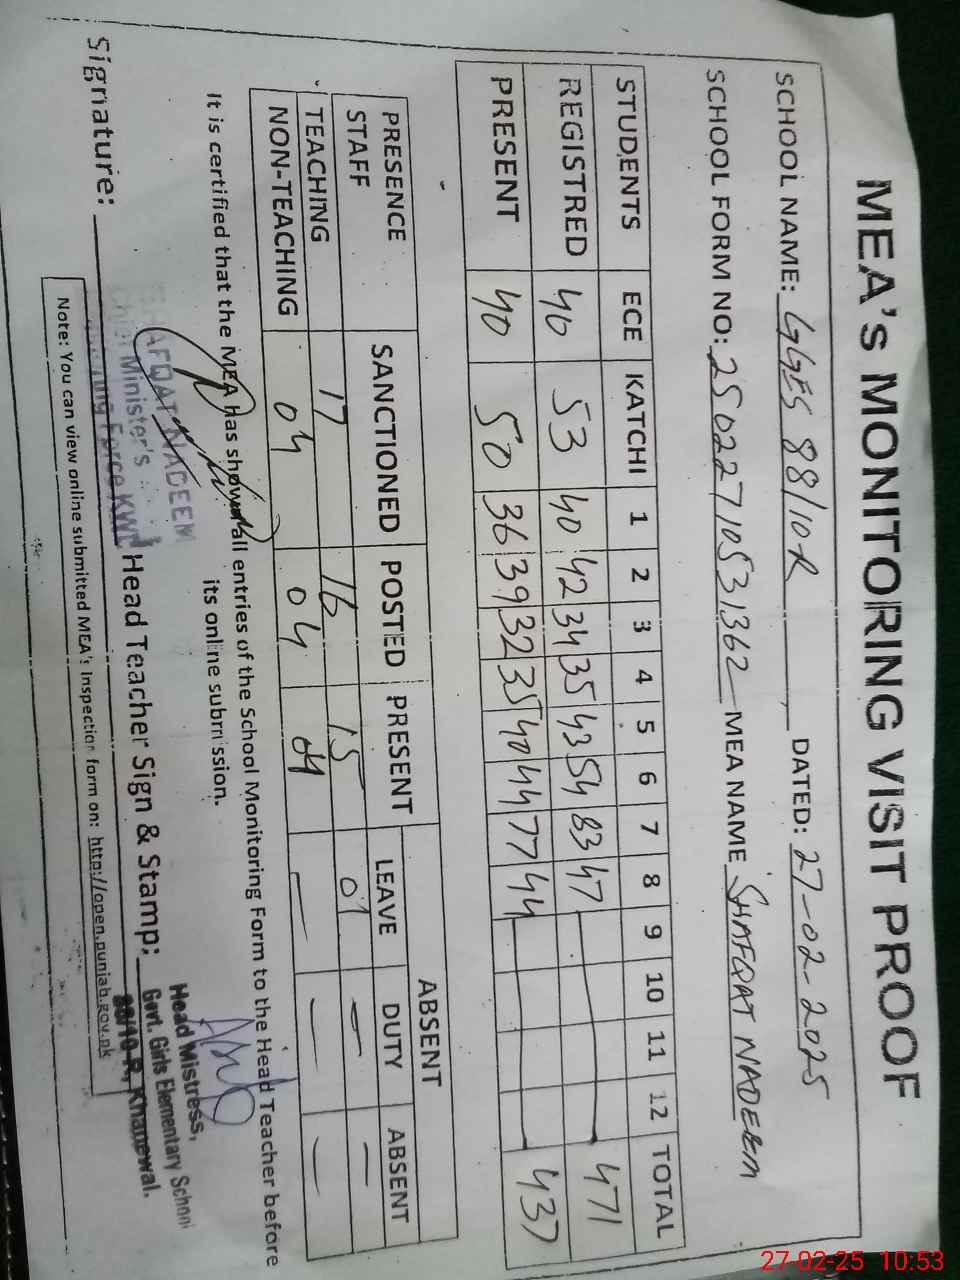 MEA'S MONITORING VISIT PROOF
SCHOOL NAME: GGES 88/10R DATED: 27-02-2025
SCHOOL FORM NO: 25022710531362 MEA NAME SHAFQAT NADEEM
STUDENTS ECE KATCHI 1 2 3 4 5 6 7 8 9 10 11 12 TOTAL
REGISTRED 40 53 40 42 34 35 43 54 83 47 471
PRESENT 40 50 36 39 32 35 40 44 77 44 437
PRESENCE SANCTIONED POSTED PRESENT ABSENT
STAFF LEAVE DUTY ABSENT
TEACHING 17 16 15 01 — —
NON-TEACHING 04 04 04 — — —
It is certified that the MEA has shown all entries of the School Monitoring Form to the Head Teacher before
its online submission.
Signature: Head Teacher Sign & Stamp:
SHAFQAT NADEEM
Chief Minister's
Monitoring Force KWL
Head Mistress,
Govt. Girls Elementary School
88/10-R, Khanewal.
Note: You can view online submitted MEA's Inspection form on: http://open.punjab.gov.pk
27-02-25 10:53